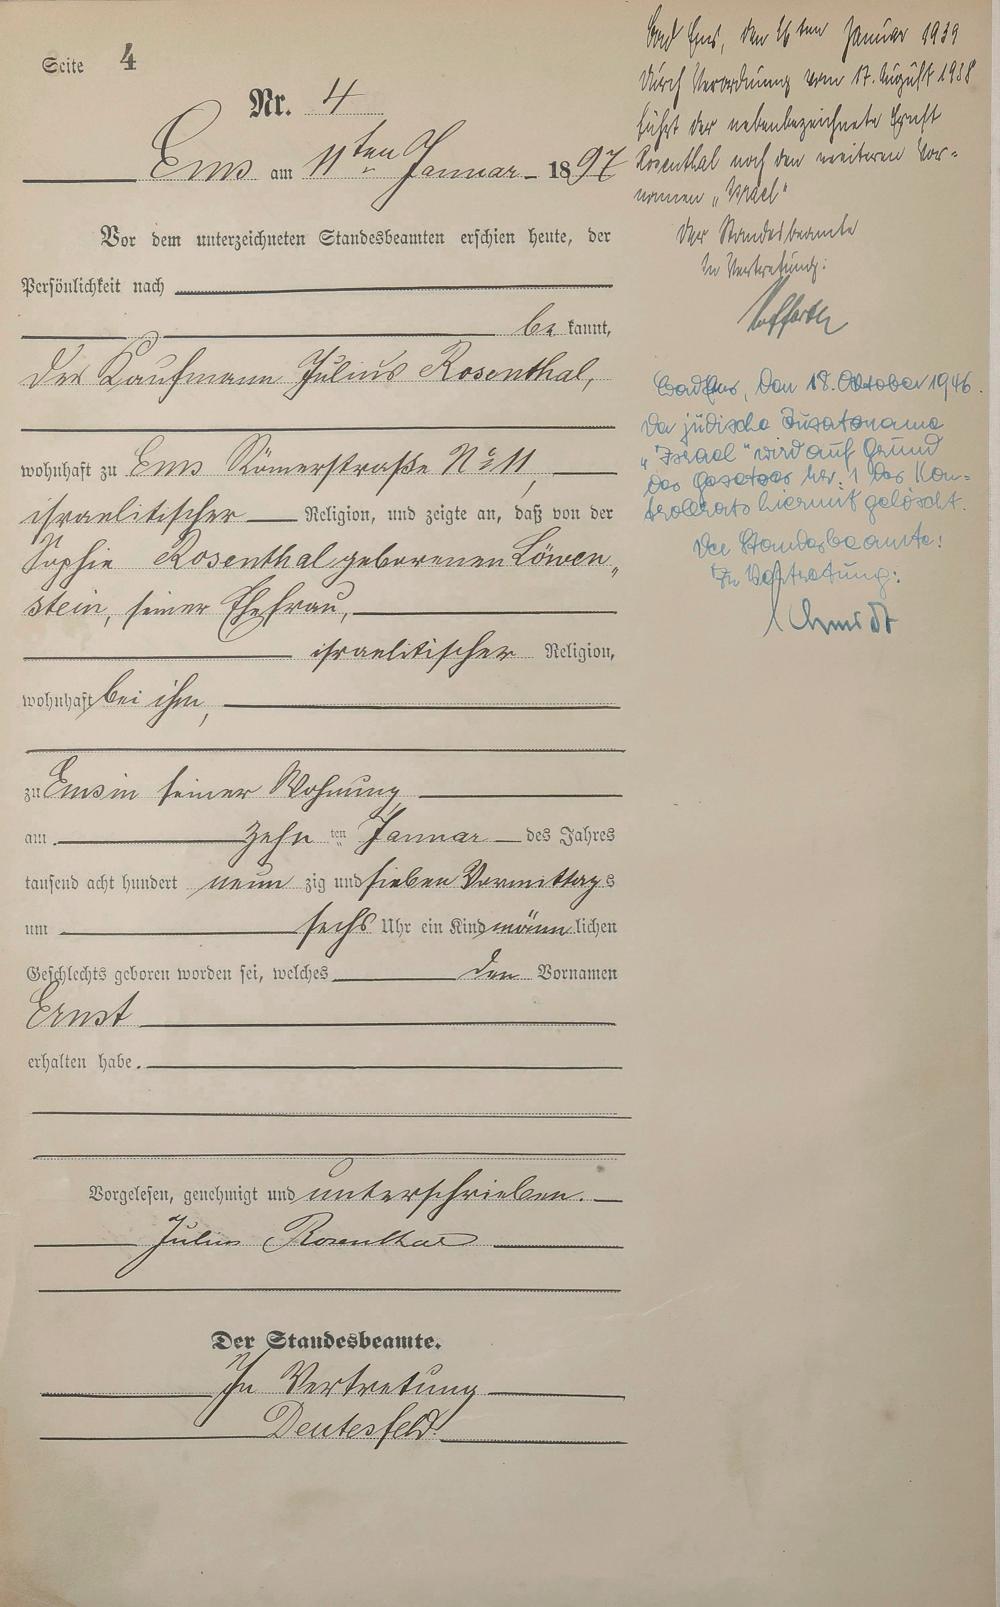 Seite 4
Nr. 4
Ems am 11ten Januar 1897
Vor dem unterzeichneten Standesbeamten erschien heute, der
Persönlichkeit nach
bekannt,
der Kaufmann Julius Rosenthal,
wohnhaft zu Ems Römerstraße No 11,
israelitischer Religion, und zeigte an, daß von der
Sophie Rosenthal geborenen Löwen„
stein, seiner Ehefrau,
israelitischer Religion,
wohnhaft bei ihm,
zu Ems in seiner Wohnung
am zehn ten Januar des Jahres
tausend acht hundert neun zig und sieben Vormittags
um sechs Uhr ein Kind männlichen
Geschlechts geboren worden sei, welches den Vornamen
Ernst
erhalten habe.
Vorgelesen, genehmigt und unterschrieben.
Julius Rosenthal
Der Standesbeamte.
In Vertretung
Deutesfeld
Bad Ems, den 16ten Januar 1939
Durch Verordnung vom 17. August 1938
führt der nebenbezeichnete Ernst
Rosenthal noch den weiteren Vor-
namen „Israel"
Der Standesbeamte
In Vertretung:
Bad Ems, den 18. Oktober 1946.
Der jüdische Zusatzname
„Israel" wird auf Grund
des Gesetzes Nr. 1 des Kon-
trollrats hiermit gelöscht.
Der Standesbeamte:
In Vertretung:
Schmidt